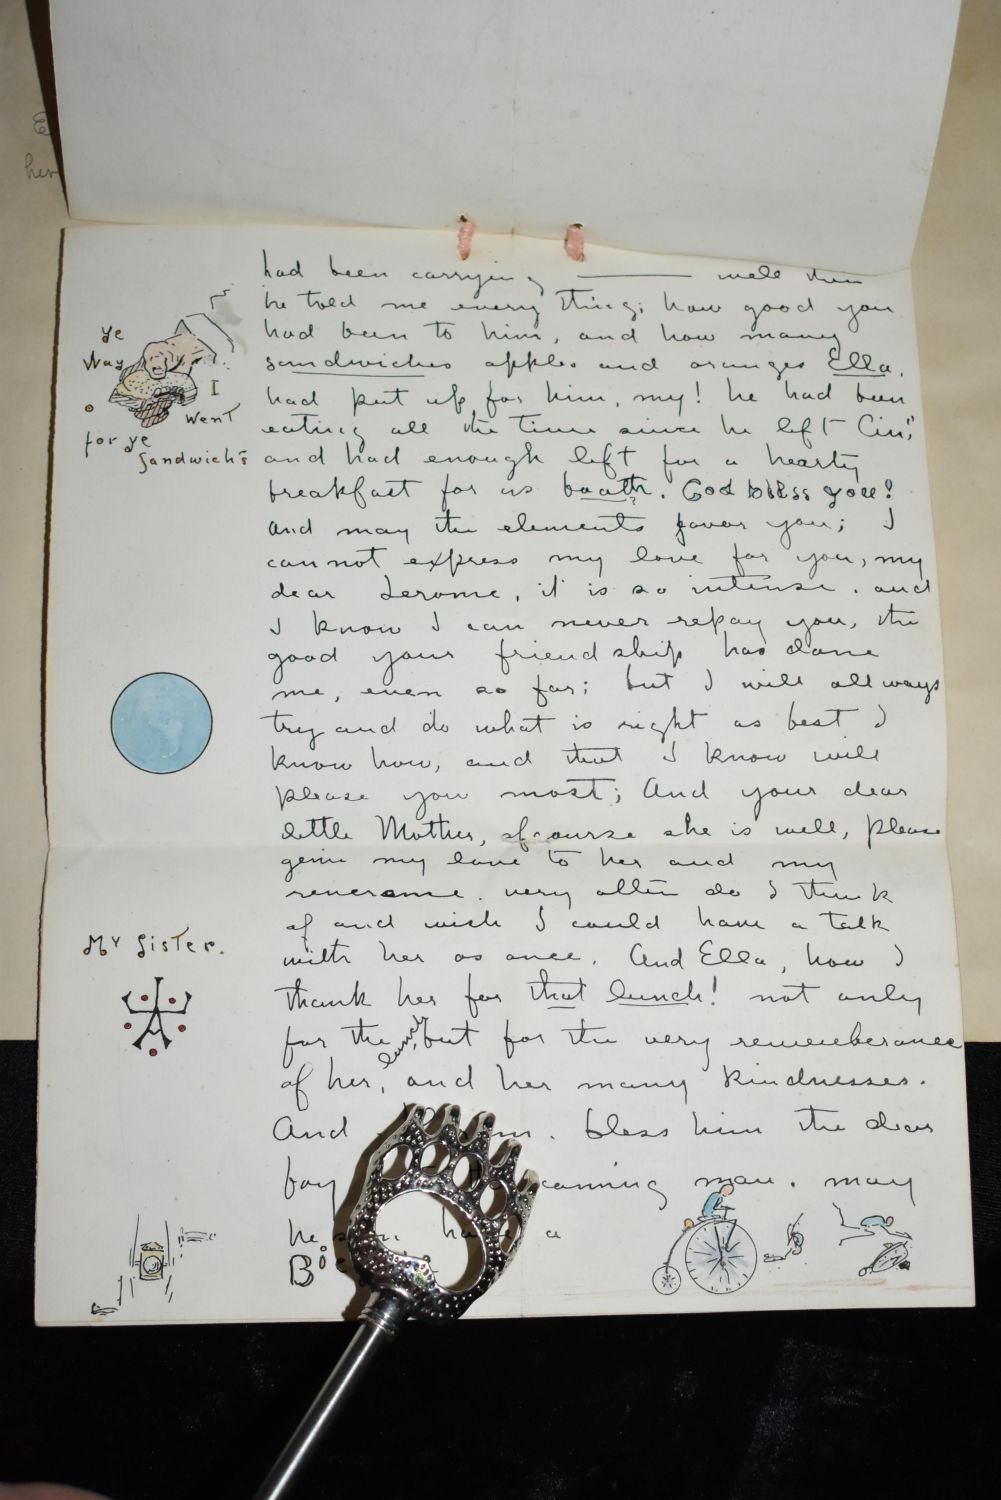 had been carrying ——— well then
he told me every thing; how good you
had been to him, and how many
sandwiches apples and oranges Ella,
had put up for him, my! he had been
eating all the time since he left Cin;"
and had enough left for a hearty
breakfast for us baath. God bless you!
And may the elements favor you; I
cannot express my love for you, my
dear Jerome, it is so intense. and
I know I can never repay you, the
good your friendship has done
me, even so far; but I will allways
try and do what is right as best I
know how, and that I know will
please you most; And your dear
little Mother, of course she is well, please
give my love to her and my
very often do I think
of and wish I could have a talk
with her as once. And Ella, how I
thank her for that lunch! not only
for the lunch, but for the very rememberance
of her, and her many kindnesses.
And bless him the dear
boy coming man. may
he a
ye
Way
I
Went
for ye
Sandwich's
My Sister.